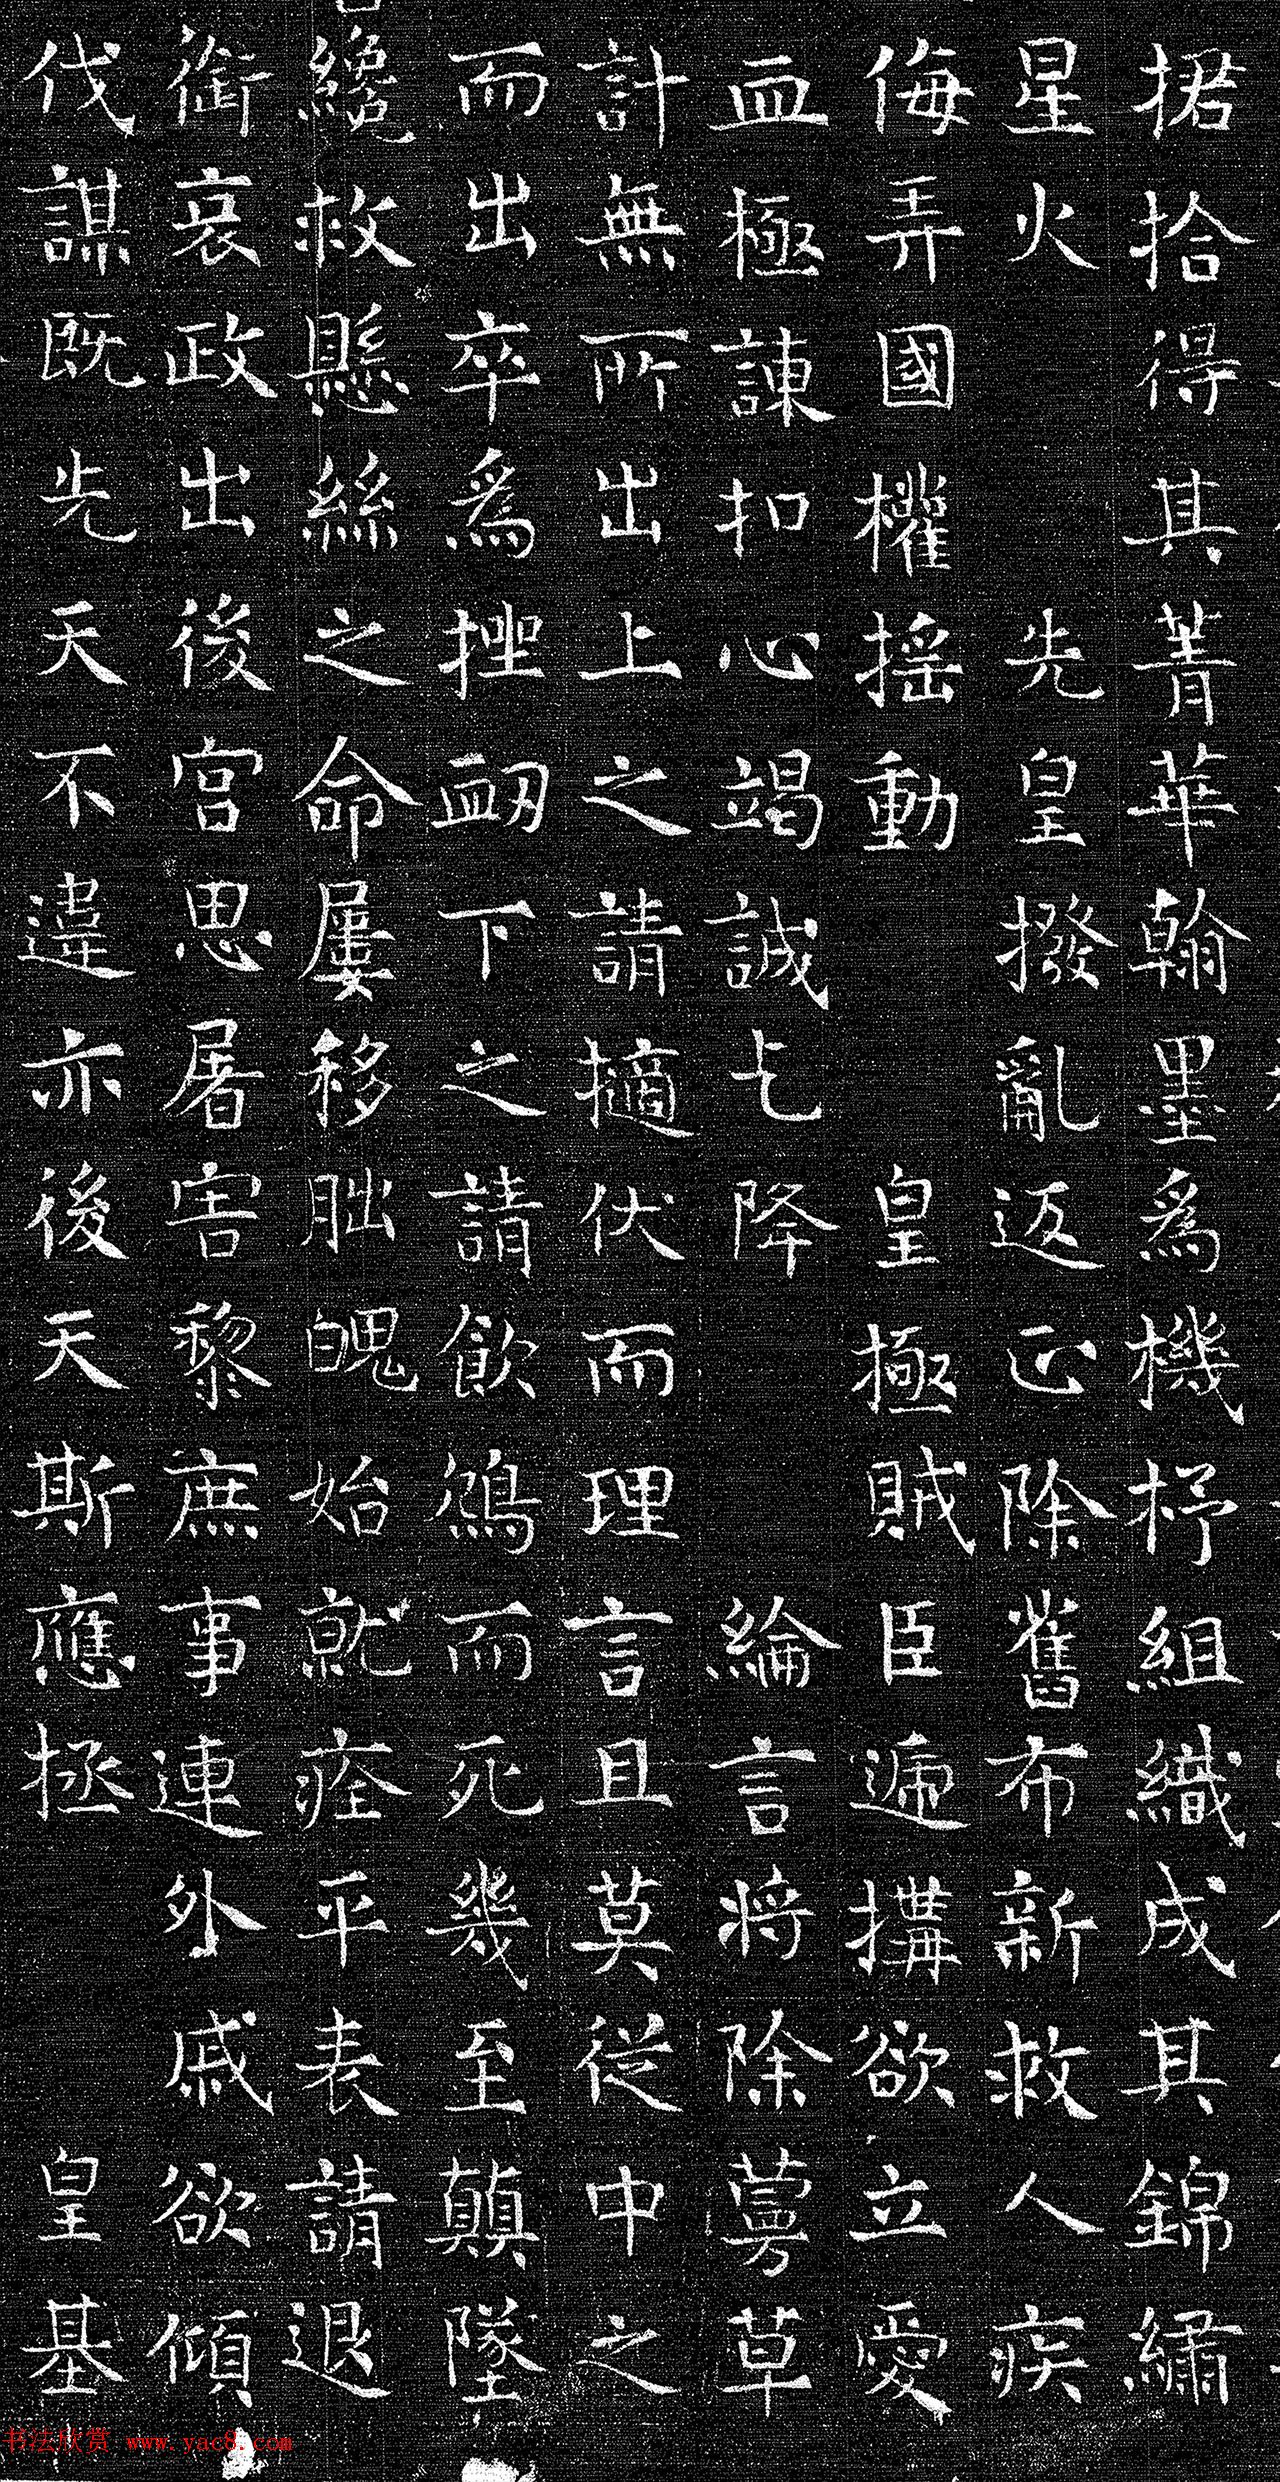 捃拾得其菁華翰墨為機杼組織成其錦繡
星火先皇撥亂返正除舊布新救人疾
侮弄國權搖動皇極賊臣遞搆欲立愛
血極諫扣心竭誠乞降綸言將除蔓草
計無所出上之請擿伏而理言且莫從中之
而出卒為挫衂下之請飲鴆而死幾至顛墜
纔救懸絲之命屢移朏魄始就痊平表請退
銜哀政出後宮思屠害黎庶事連外戚欲傾
伐謀既先天不違亦後天斯應拯皇基
书法欣赏 www.yac8.com